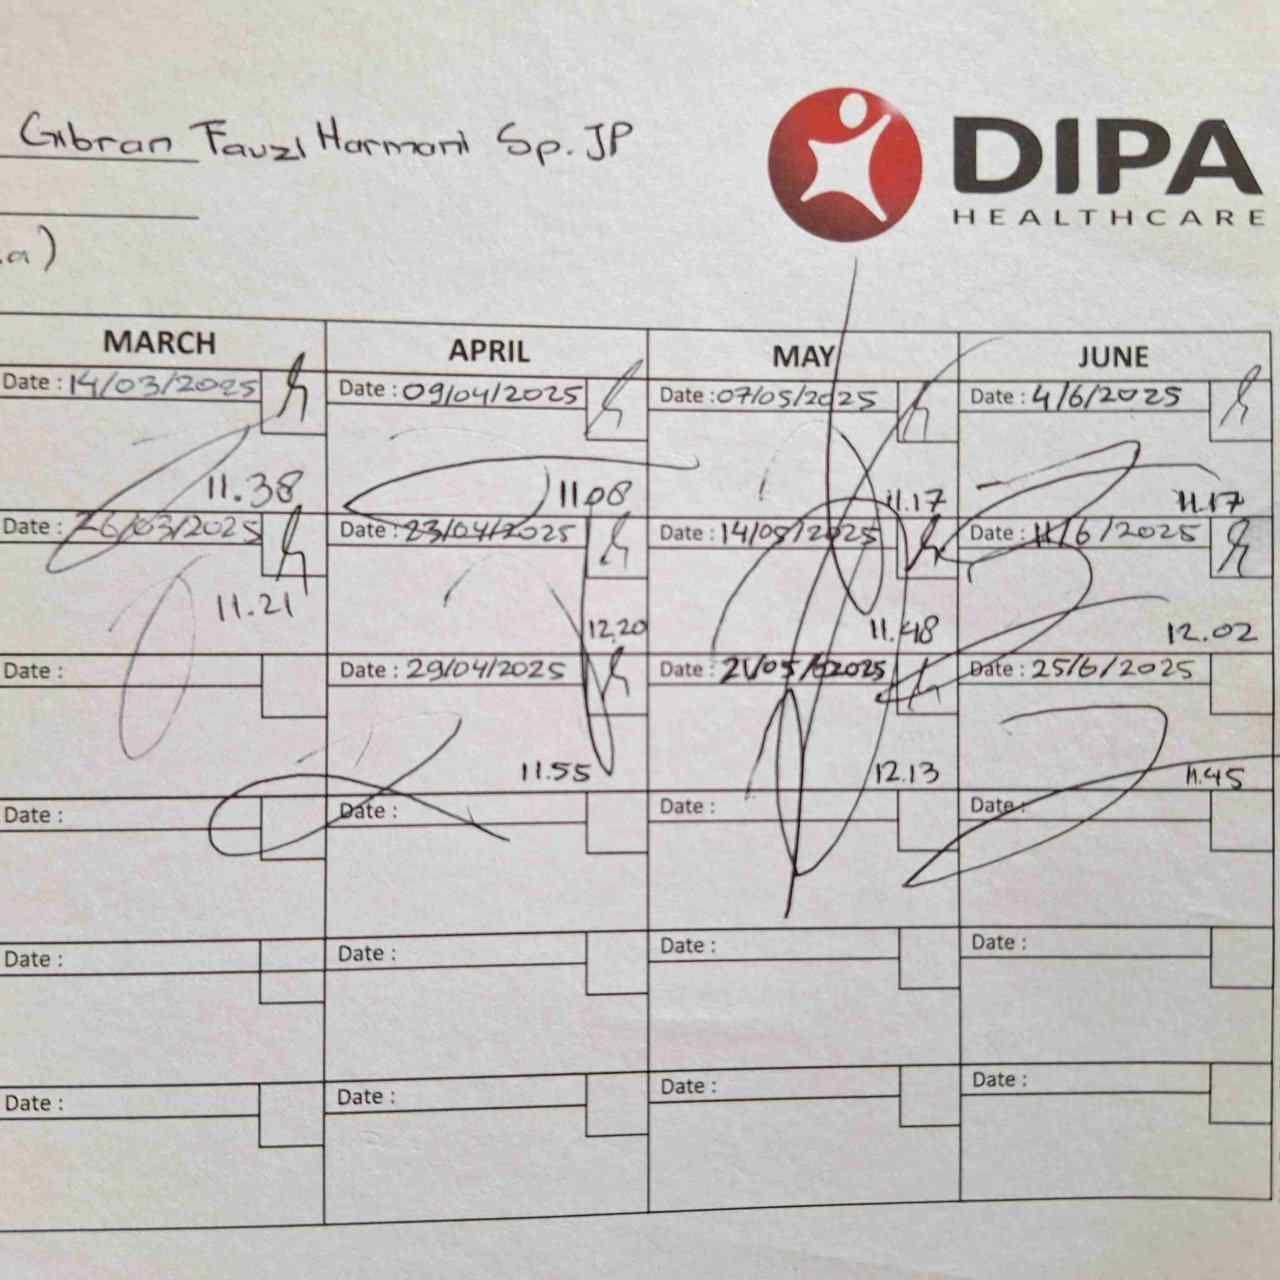 Gibran Fauzi Harmani Sp. JP
DIPA
HEALTHCARE
.a)
MARCH APRIL MAY JUNE
Date : 14/03/2025 Date : 09/04/2025 Date : 07/05/2025 Date : 4/6/2025
11.38 11.08 11.17 11.17
Date : 26/03/2025 Date : 23/04/2025 Date : 14/05/2025 Date : 11/6/2025
11.21 12.20 11.48 12.02
Date : Date : 29/04/2025 Date : 21/05/2025 Date : 25/6/2025
11.55 12.13 11.45
Date : Date : Date : Date :
Date : Date : Date : Date :
Date : Date : Date : Date :